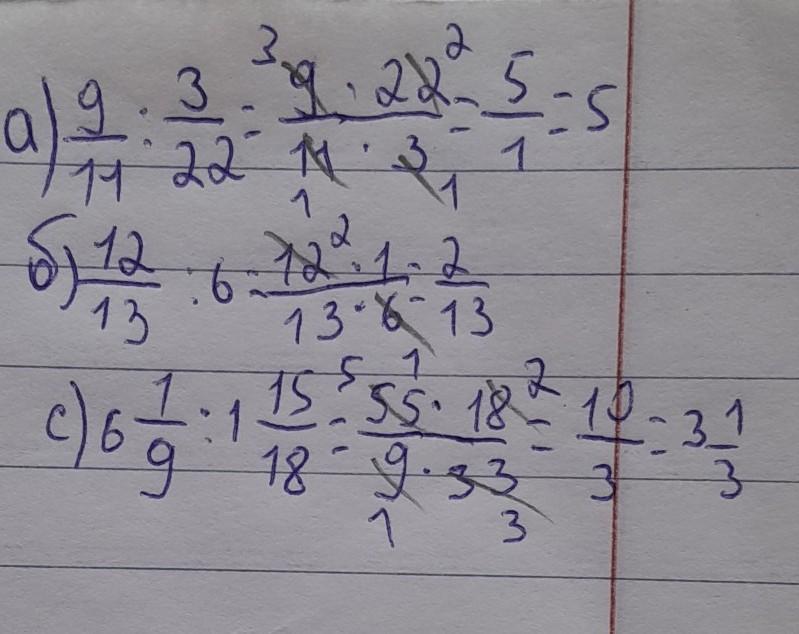 а) 9/11 : 3/22 = ³9 · 22²/11₁ · 3₁ = 5/1 = 5
б) 12/13 : 6 = 12² · 1/13 · 6₁ = 2/13
с) 6 1/9 : 1 15/18 = ⁵55 · 18²/9₁ · 33₃ = 10/3 = 3 1/3